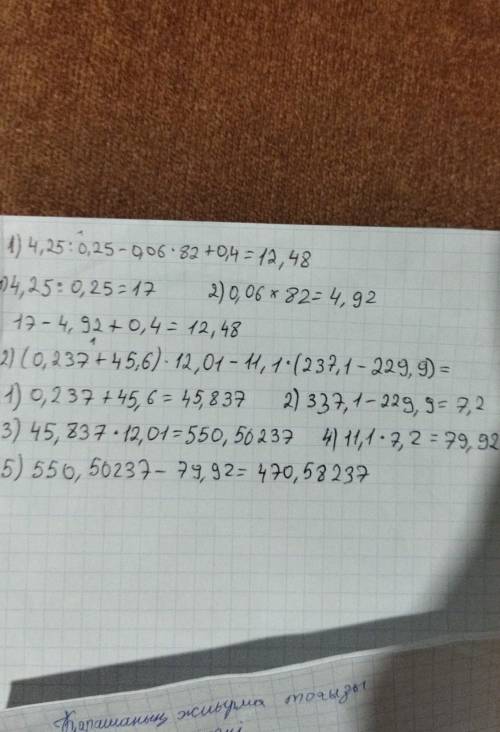 1) 4,25:0,25-0,06·82+0,4=12,48
1) 4,25:0,25=17 2) 0,06×82=4,92
17-4,92+0,4=12,48
2) (0,237+45,6)·12,01-11,1·(237,1-229,9)=
1) 0,237+45,6=45,837 2) 337,1-229,9=7,2
3) 45,837·12,01=550,50237 4) 11,1·7,2=79,92
5) 550,50237-79,92=470,58237
Қарашаның жиырма тоғызы